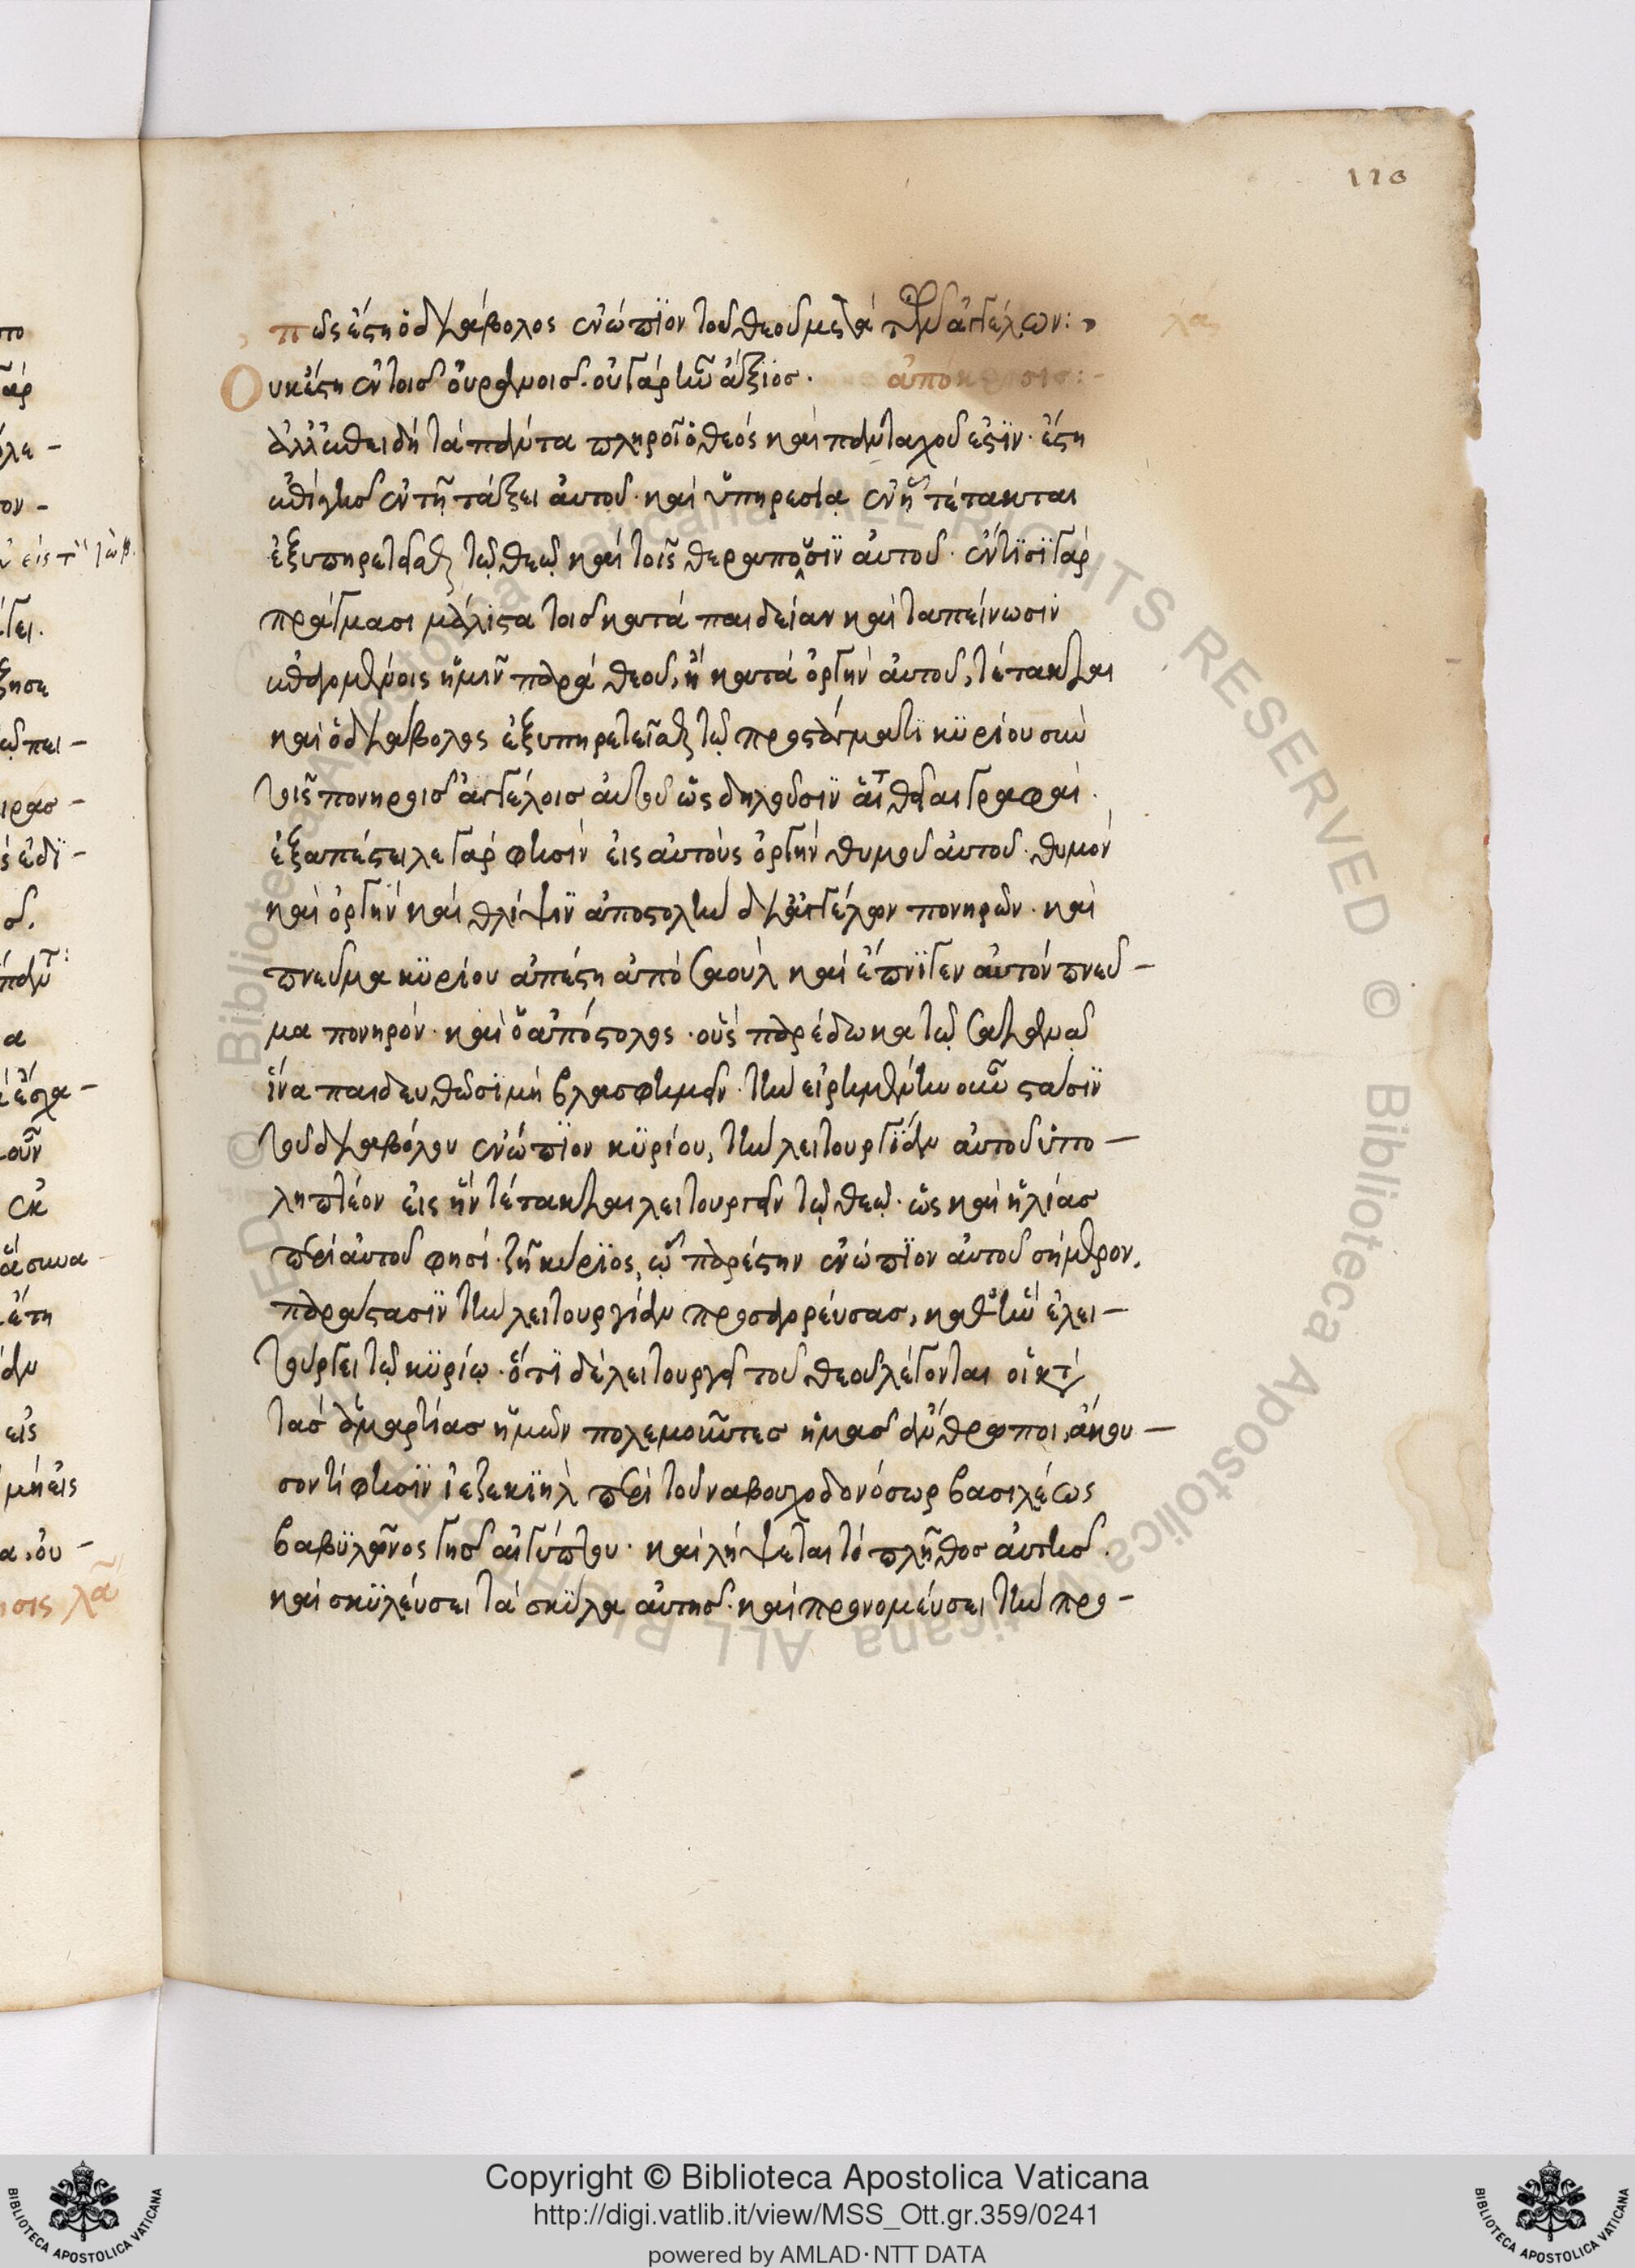 118
πῶς ἔστι ὁ διάβολος ἐνώπιον τοῦ θεοῦ μετὰ τῶν ἀγγέλων:
Οὐκ ἔστι ἐν τοῖς οὐρανοῖς. οὐ γὰρ ἦν ἄξιος. ἀπόκρισις:-
ἀλλ' ἐπειδὴ τὰ πάντα πληροῖ ὁ θεός καὶ πανταχοῦ ἐστϊν. ἔστι
ἐν τῇ τάξει αὐτοῦ. καὶ ὑπηρεσία ἐν ᾗ τέτακται
ἐξυπηρετεῖσθαι τῷ θεῷ καὶ τοῖς θεράπουσϊν αὐτοῦ. ἔν τϊσϊ γὰρ
πράγμασι μάλιστα τοῖς κατὰ παιδείαν καὶ ταπείνωσιν
ἐπαγομένοις ἡμῖν παρὰ θεοῦ, ἢ κατὰ ὀργὴν αὐτοῦ, τέτακται
καὶ ὁ διάβολος ἐξυπηρετεῖσθαι τῷ προστάγματϊ κϋρίου σὺν
τοῖς πονηροῖς ἀγγέλοις αὐτοῦ ὡς δηλοῦσϊν αἱ θεῖαι γραφαί.
ἐξαπέστειλε γάρ φησὶν εἰς αὐτοὺς ὀργὴν θυμοῦ αὐτοῦ. θυμὸν
καὶ ὀργὴν καὶ θλίψϊν ἀποστολὴν δι' ἀγγέλων πονηρῶν. καὶ
πνεῦμα κϋρίου ἀπέστη ἀπὸ σαοὺλ καὶ ἔπνϊγεν αὐτόν πνεῦ-
μα πονηρόν. καὶ ὁ ἀπόστολος. οὓς παρέδωκα τῷ σατανᾷ
ἵνα παιδευθῶσϊ μὴ βλασφημεῖν. τὴν εἰρημένην οὖν στάσϊν
τοῦ διαβόλου ἐνώπϊον κϋρίου, τὴν λειτουργΐαν αὐτοῦ ὑπο-
ληπτέον εἰς ἣν τέτακται λειτουργεῖν τῷ θεῷ. ὡς καὶ ἠλίας
περὶ αὐτοῦ φησί. ζῇ κύρϊος, ᾧ παρέστην ἐνώπϊον αὐτοῦ σήμερον.
παράστασϊν τὴν λειτουργίαν προσαγορεύσας, καθ' ἣν ἐλει-
τούργει τῷ κϋρίῳ. ὅτϊ δὲ λειτουργοὶ τοῦ θεοῦ λέγονται οἱ κατὰ
τὰς ἁμαρτίας ἡμῶν πολεμοῦντες ἡμᾶς ἄνθρωποι, ἄκου-
σον τί φησϊν ἰεζεκϊὴλ περὶ τοῦ ναβουχοδονόσωρ βασιλέως
βαβϋλῶνος γῆς αἰγύπτου. καὶ λήψεται τὸ πλῆθος αὐτῆς.
καὶ σκϋλεύσει τὰ σκῦλα αὐτῆς. καὶ προνομεύσει τὴν προ-
Copyright © Biblioteca Apostolica Vaticana
http://digi.vatlib.it/view/MSS_Ott.gr.359/0241
powered by AMLAD·NTT DATA
BIBLIOTECA APOSTOLICA VATICANA
BIBLIOTECA APOSTOLICA VATICANA